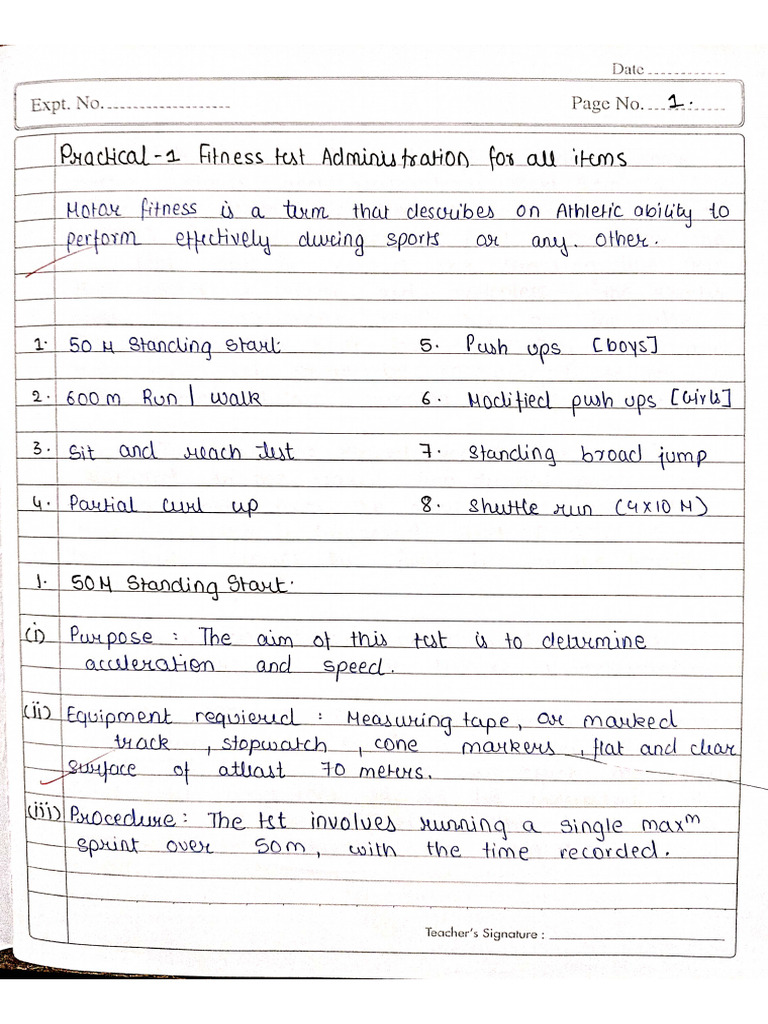 Date
Expt. No. Page No. 1.
Practical-1 Fitness test Administration for all items
Motor fitness is a term that describes on Athletic ability to
perform effectively during sports or any. other.
1. 50 M Standing Start. 5. Push ups [boys]
2. 600 m Run | walk 6. Modified push ups [Girls]
3. Sit and reach test 7. Standing broad jump
4. Partial curl up 8. Shuttle run (4x10 M)
1. 50M Standing Start.
(i) Purpose : The aim of this test is to determine
acceleration and speed.
(ii) Equipment requiered : Measuring tape, or marked
track , stopwatch , cone markers , flat and clear
surface of atleast 70 meters.
(iii) Procedure : The test involves running a single maxᵐ
sprint over 50m, with the time recorded.
Teacher's Signature :